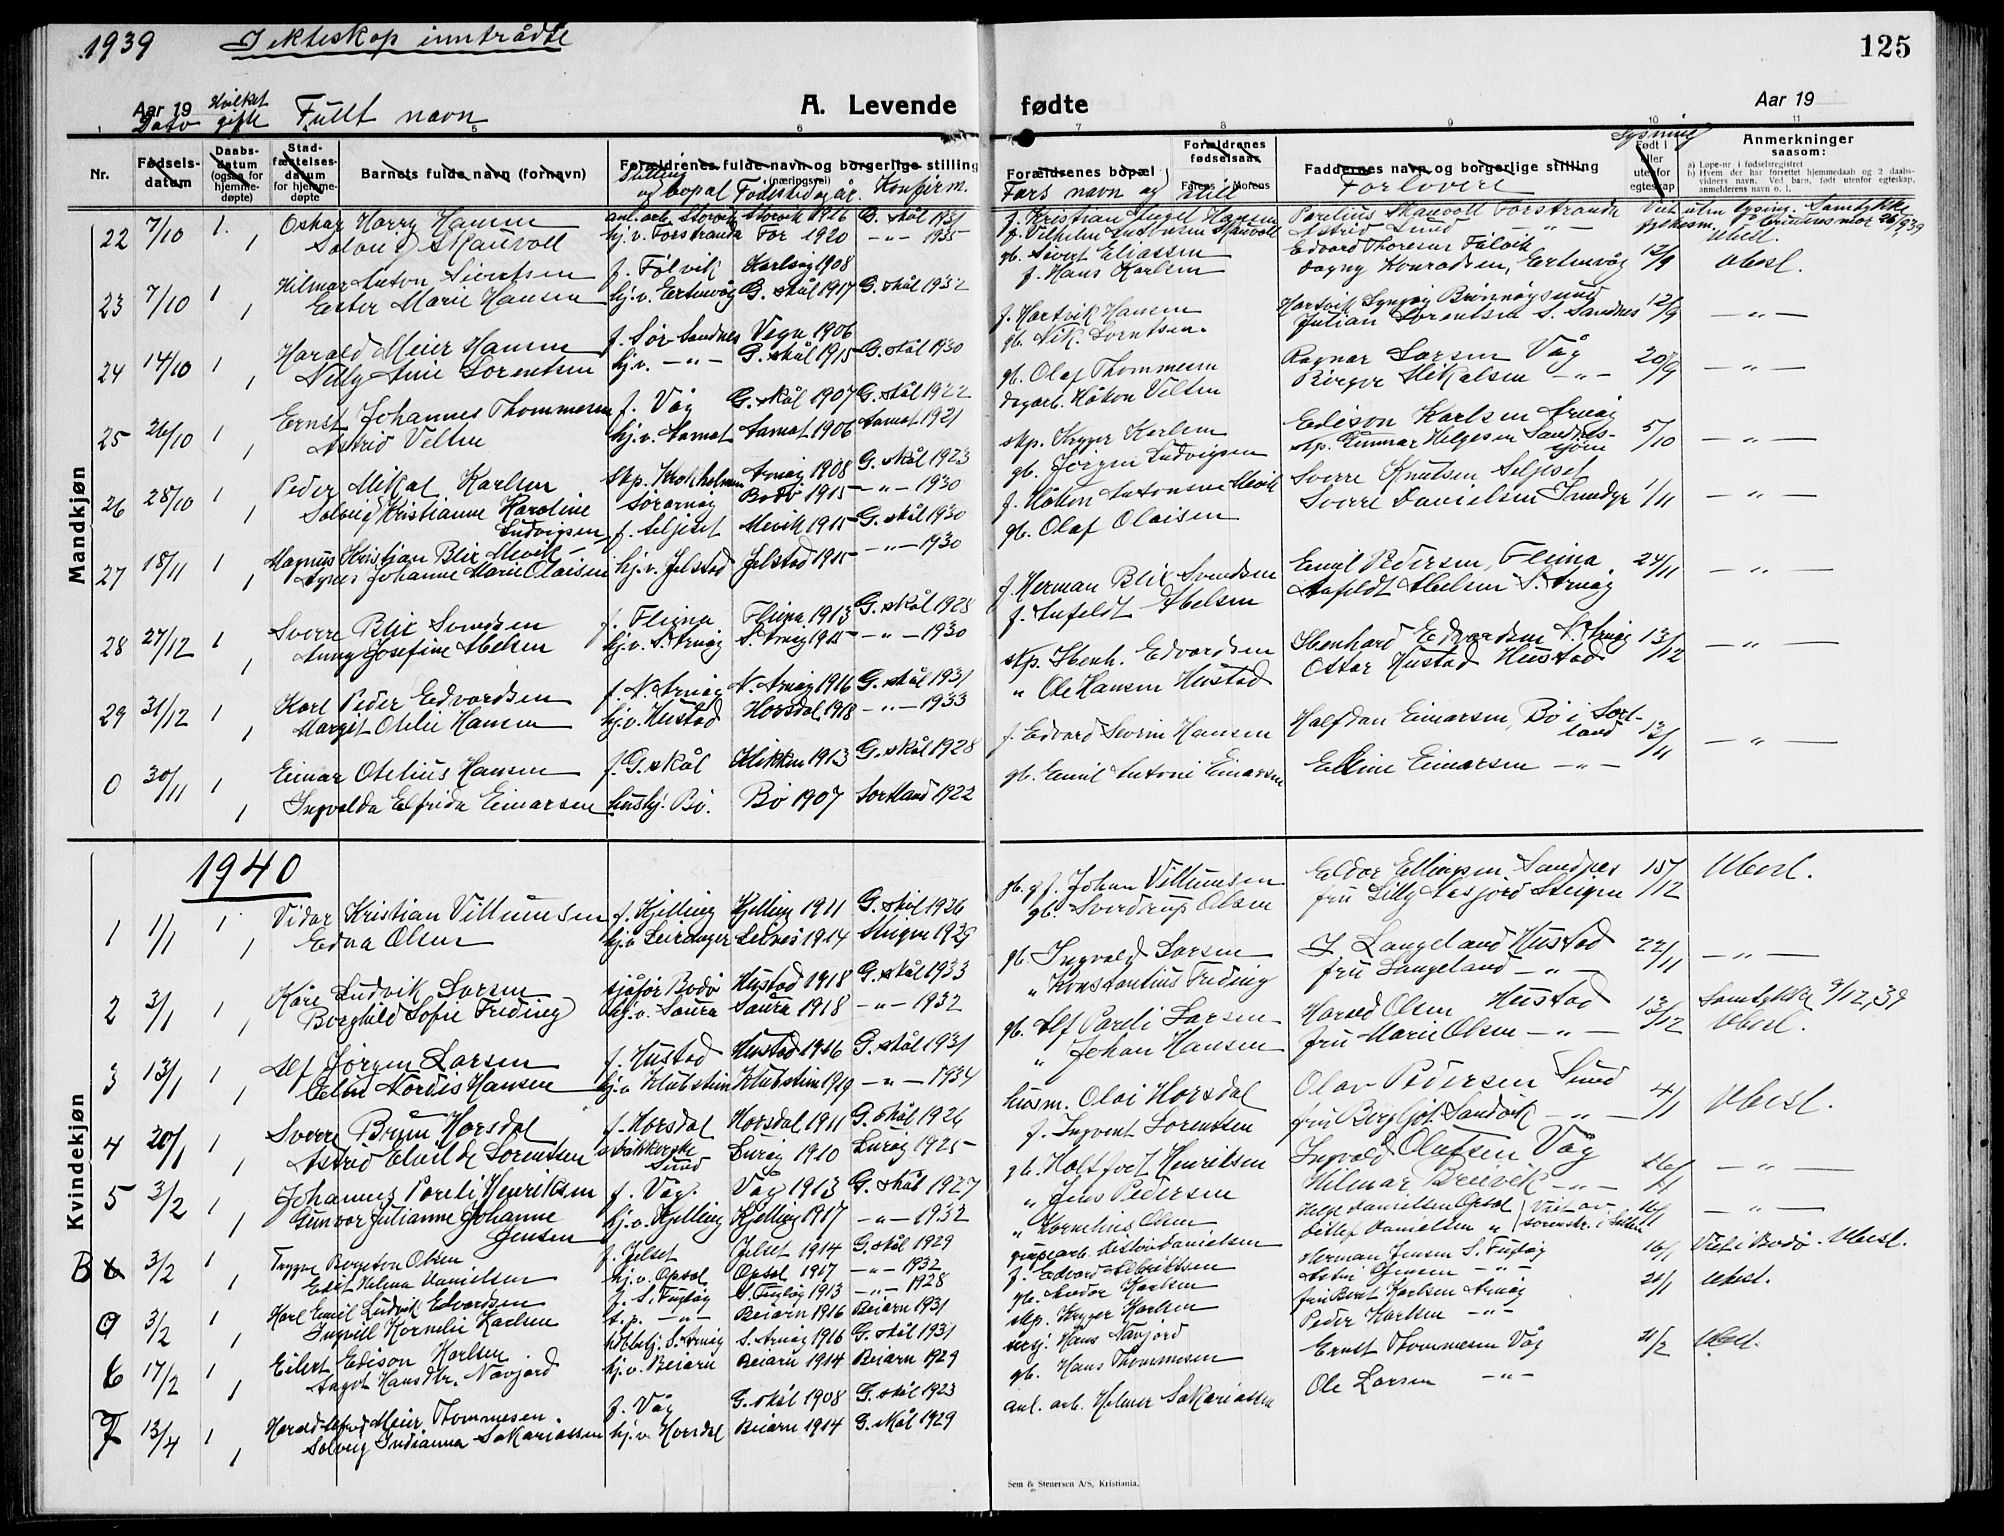 1939 Ekteskap inntrådte
125
Aar 19 Hvilket
Dato gifte Fullt navn
A. Levende fødte
Aar 19
1 5 6 7 8 9 10 11
Nr. Fødsels-datum Daabs-datum (ogsaa for hjemme-døpte) Stad-fæstelses-datum for hjemme-døpte Barnets fulde navn (fornavn) Forældrenes fulde navn og borgerlige stilling (næringsvei) Forældrenes bopæl Forældrenes fødselsaar. Farens Morens Faddernes navn og borgerlige stilling Født i eller utenfor egteskap Anmerkninger saasom:
a) Løpe-nr. i fødselsregistret
b) Hvem der har forrettet hjemmedaab og 2 daabs-vidners navn. Ved barn, født utenfor egteskap, anmelderens navn o. l.
Stilling og bopal Fødested og år. Konfirm. Fars navn og still Forlovere Lysning
Mandkjøn
22 7/10 1. Oskar Harry Hansen anl. arb. Storvik Storvik 1926 G. skål 1931 f. Kristian Angel Hansen Parelius Skauvoll Forstranda Viet uten lysing. Samtykke
1 Solveig Skauvoll hj.v. Forstranda For 1920 -"- 1935 f. Vilhelm Skauvoll Astrid Lund -"- Ubesl.
23 7/10 1 Hilmar Anton Sivertsen f. Følvik Karlsøy 1908 gb. Sivert Eliassen Edvard Thoresen Følvik 12/9 Ubesl.
1 Ester Marie Hansen hj.v. Ertenvåg G. skål 1917 G. skål 1932 f. Hans Karlsen Dagny Konradsen, Ertenvåg
24 14/10 1 Harald Meier Hansen f. Sør-Sandnes Vega 1906 f. Hartvik Hansen Hartvik Lyngøy Brønnøysund 12/9 -"-
1 Nelly Anie Lorentsen hj.v. -"- G. skål 1915 G. skål 1930 gb. Nik. Lorntsen. Julian Lorentsen S. Sandnes
25 26/10 1 Ernst Johannes Thommesen f. Våg G. skål 1907 G. skål 1922 gb. Olaf Thommesen Ragnar Larsen Våg 20/9 -"-
1 Astrid Velten hj.v. Aamot Aamot 1906 Aamot 1921 dagarb. Håkon Velten Birger Mikalsen -"-
26 28/10 1 Peder Mikal Karlsen skp. Krokholmen Arnøy 1908 G. skål 1923 skp. Kryger Karlsen Edison Karlsen Arnøy 5/10 -"-
1 Solveig Kristianne Karoline Ludvigsen Sørarnøy Bodø 1915 -"- 1930 gb. Jørgen Ludvigsen skp. Gunnar Helgesen Sandnes-sjøen
27 18/11 1 Magnus Kristian Blix Mevik f. Seljeset Mevik 1915 G. skål 1930 f. Håkon Antonsen Mevik Sverre Knutsen Seljeset 1/11 -"-
1 Agnes Johanne Marie Olaisen hj.v. Jelstad Jelstad 1915 -"- 1930 gb. Olaf Olaisen Sverre Danielsen Inndyr
28 27/12 1 Sverre Blix Svendsen f. Fleina Fleina 1913 G. skål 1928 f. Herman Blix Svendsen Emil Pedersen, Fleina 24/11 -"-
1 Anny Josefine Abelsen hj.v. S. Arnøy S. Arnøy 1915 -"- 1930 f. Anfeldt Abelsen Anfeldt Abelsen S. Arnøy
29 31/12 1 Karl Peder Edvardsen f. N. Arnøy N. Arnøy 1916 G. skål 1931 skp. Ebenh. Edvardsen Ebenhard Edvardsen N. Arnøy 13/12 -"-
1 Margit Otelie Hansen hj.v. Hustad Horsdal 1918 -"- 1933 " Ole Hansen Hustad Ottar Hustad Hustad
0 30/11 1 Einar Otelius Hansen f. G. skål 1913 G. skål 1928 f. Edvard Severin Hansen Halfdan Einarsen, Bø i Sort-land 13/11 -"-
1 Ingvalda Elfrida Einarsen hushj. Bø. Bø 1907 Sortland 1922 gb. Emil Antoni Einarsen Elline Einarsen -"-
1940
Kvindekjøn
1 1/1 1 Vidar Kristian Villumsen f. Kjelling Kjelling 1911 G. skål 1926 gb. og f. Johan Villumsen Eldor Ellingsen Sandnes 15/12 Ubesl.
1 Edna Olsen hj.v. Leiranger 1914 Steigen 1929 gb. Sverdrup Olsen fru Lilly Aasjord Steigen
2 3/1 1 Kåre Ludvik Larsen sjåfør Bodø Hustad 1918 G. skål 1933 gb. Ingvald Larsen J. Langeland Hustad 22/11 -"-
1 Borghild Sofie Freding hj.v. Saura Saura 1918 -"- 1932 " Konstantius Freding fru Langeland -"-
3 13/1 1 Alf Jørgen Larsen f. Hustad Hustad 1916 G. skål 1931 gb. Alf Pareli Larsen Harald Olsen Hustad 13/12 Samtykke 9/12,39
1 Nordis Hansen hj.v. Klubstein Klubstein 1919 -"- 1934 " Johan Hansen fru Marie Olsen -"- Ubesl.
4 20/1 1 Sverre Bruun Horsdal f. Horsdal Horsdal 1911 G. skål 1926 husm. Olai Horsdal Olav Pedersen Sund 4/1 Ubesl.
1 Astrid Elvilde Lorentsen Sund Lurøy 1910 Lurøy 1925 f. Ingvart Lorentsen fru Bergljot Sandvik -"-
5 3/2 1 Johannes Pareli Henriksen f. Våg. Våg 1913 G. skål 1927 gb. Halfred Henriksen Ingvald Olafsen Våg 16/1 -"-
1 Gunvor Julianne Johanne Jensen hj.v. Kjelling Kjelling 1917 -"- 1932 " Jens Pedersen Hilmar Breivik -"-
B 3/2 1 Trygve Bergeton Olsen f. Jelset Jelset 1914 G. skål 1929 " Kornelius Olsen Helge Danielsen Opsal Viet av 16/1 -"-
1 Edit Halma Danielsen hj.v. Opsal Opsal 1917 -"- 1932 Danielsen Detlef Danielsen " sorenskr. i Salten
0 3/2 1 Karl Emil Ludvik Edvardsen f. S. Fugløy S. Fugløy 1913 -"- 1928 f. Edvard Albriktsen Herman Jensen S. Fugløy 16/1 Viet i Bodø. Ubesl.
1 Ingvill Kornelie Karlsen t.p. -"- Beiarn 1916 Beiarn 1931 gb. Karlsen Jensen -"-
6 17/2 1 Eilert Edison Karlsen S. Arnøy S. Arnøy 1916 G. skål 1931 skp. Kryger Karlsen fru Berit Karlsen Arnøy 20/1 Ubesl.
1 Aagot Hansdtr. Navjord hj.v. Beiarn Beiarn 1914 Beiarn 1929 Hans Navjord Peder Karlsen -"-
7 13/4 1 Harald Alfred Meier Thommesen. f. Våg G. skål 1908 G. skål 1923 gb. Hans Thommesen Ernst Thommesen Våg 21/2 Ubesl.
1 Solveig Indianna Sakariassen hj.v. Horsdal Beiarn 1914 G. skål 1929 anl. arb. Helmer Sakariassen Ole Larsen -"-
Sem & Stenersen A/S, Kristiania.